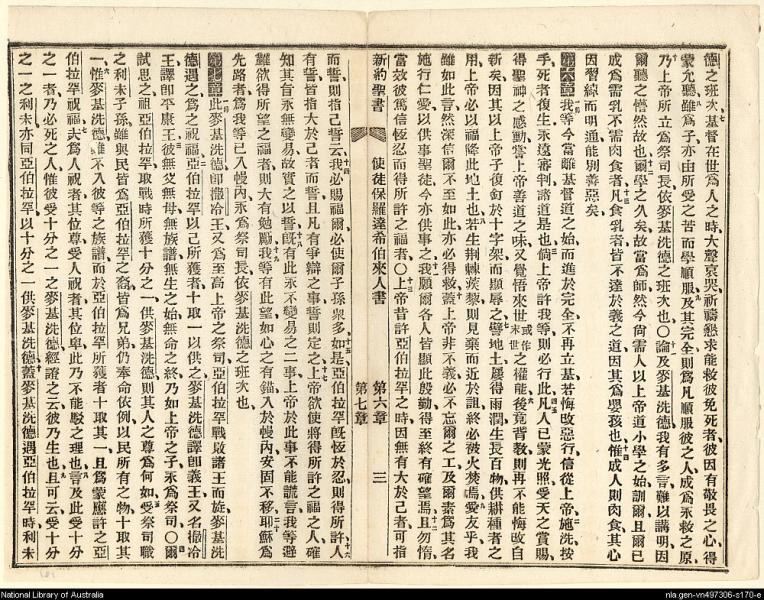 德之班次、七基督在世爲人之時大聲哀哭、祈禱懇求能救彼免死者、彼因有敬畏之心得
蒙允聽、雖爲子、亦由所受之苦而學順服、及其完全則爲凡順服彼之人成爲永救之原
乃上帝所立爲祭司長、依麥基洗德之班次也、〇論及麥基洗德我有多言、難以講明因
爾聽之懵然故也、爾學之久矣、故當爲師、然今尙需人以上帝道小學之始訓爾、且爾已
成爲需乳不需肉食者、凡食乳者皆不達於義之道、因其爲嬰孩也、惟成人則肉食其心
因習練而明通能別善惡矣
第六章 我等今當離基督道之始而進於完全、不再立基、若悔改惡行、信從上帝、施洗按
手死者復生永遠審判諸道是也、倘上帝許我等則必行此、凡人已蒙光照、受天之賞賜
得聖神之感動、嘗上帝善道之味、又覺悟來世或作末世之權能、後竟背敎則再不能悔改自
新矣、因其以上帝子復釘於十字架而顯辱之、譬地土屢得雨潤生長百物供耕種者之
用、上帝必以福降此地土也、若生荆棘蒺藜則見棄而近於詛、終必被火焚焉、愛友乎我
雖如此言、然深信爾不至如此亦必得救、蓋上帝非不義、必不忘爾之工及爾素爲其名
施行仁愛、以供事聖徒、今亦供事之、我願爾各人皆顯此殷勤、得至終有確望焉、且勿惰
當效彼篤信恆忍而得所許之福者、〇上帝昔許亞伯拉罕之時、因無有大於己者可指
新約聖書 使徒保羅達希伯來人書 第六章 第七章 三
而誓、則指己誓云、我必賜福爾、必使爾子孫衆多、如是亞伯拉罕旣恆於忍、則得所許、人
有誓皆指大於己者而誓、且凡有爭辯之事誓則定之、上帝欲使將得所許之福之人、確
知其旨永無變易、故實之以誓、旣有此永不變易之二事、上帝於此事不能謊言、我等避
難欲得所望之福者、則大有勉勵、我等有此望如心之有錨、入於幔內、安固不移、耶穌爲
先路者爲我等已入幔內、永爲祭司長、依麥基洗德之班次也、
第七章 此麥基洗德卽撒冷王、又爲至高上帝之祭司、亞伯拉罕戰敗諸王而旋、麥基洗
德遇之、爲之祝福、亞伯拉罕以己所獲者十取一以供之、麥基洗德譯卽義王、又名撒冷
王譯卽平康王、彼無父無母、無族譜、無生之始、無命之終、乃如上帝之子、永爲祭司、〇爾
試思之、祖亞伯拉罕取戰時所獲十分之一、供麥基洗德、則其人之尊爲何如、受祭司職
之利未子孫、雖與民皆爲亞伯拉罕之裔、皆爲兄弟、仍奉命依例以民所有之物十取其
一、惟麥基洗德雖不入彼等之族譜、而於亞伯拉罕所獲者十取其一、且爲蒙應許之亞
伯拉罕祝福、夫爲人祝者其位尊、受人祝者其位卑、此乃不能駁之理也、言及此受十分
之一者、乃必死之人、惟彼受十分之一之麥基洗德、經證之云、彼乃生也、且可云受十分
之一之利未亦同亞伯拉罕以十分之一供麥基洗德、蓋麥基洗德遇亞伯拉罕時利未
National Library of Australia
nla.gen-vn497306-s170-e